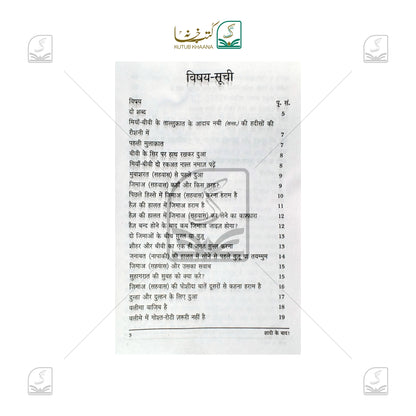 کتب خانہ
KUTUB KHAANA
विषय-सूची
विषय पृ. सं.
दो शब्द 5
मियाँ-बीवी के ताल्लुक़ात के आदाब नबी (सल्ल.) की हदीसों की
रौशनी में 7
पहली मुलाक़ात 7
बीवी के सिर पर हाथ रखकर दुआ 7
मियाँ-बीवी दो रकअत नफ़्ल नमाज़ पढ़ें 8
मुबाशरत (सहवास) से पहले दुआ 8
जिमाअ (सहवास) कहाँ और किस तरह? 9
पिछले हिस्से में जिमाअ (सहवास) करना हराम है 9
हैज़ की हालत में जिमाअ हराम है 10
हैज़ की हालत में जिमाअ (सहवास) कर लेने का कफ़्फ़ारा 11
हैज़ बन्द होने के बाद कब जिमाअ जाइज़ होगा? 12
दो जिमाओं के बीच ग़ुस्ल या वुज़ू 12
शौहर और बीवी का एक ही जगह ग़ुस्ल करना 13
जनाबत (नापाकी) की हालत में सोने से पहले वुज़ू या तयम्मुम 14
जिमाअ (सहवास) और उसका सवाब 15
सुहागरात की सुबह को क्या करे? 15
जिमाअ (सहवास) की पोशीदा बातें दूसरों से कहना हराम है 16
दुल्हा और दुल्हन के लिए दुआ 17
वलीमा वाजिब है 18
वलीमे में गोश्त-रोटी ज़रूरी नहीं है 19
3 शादी के बाद!